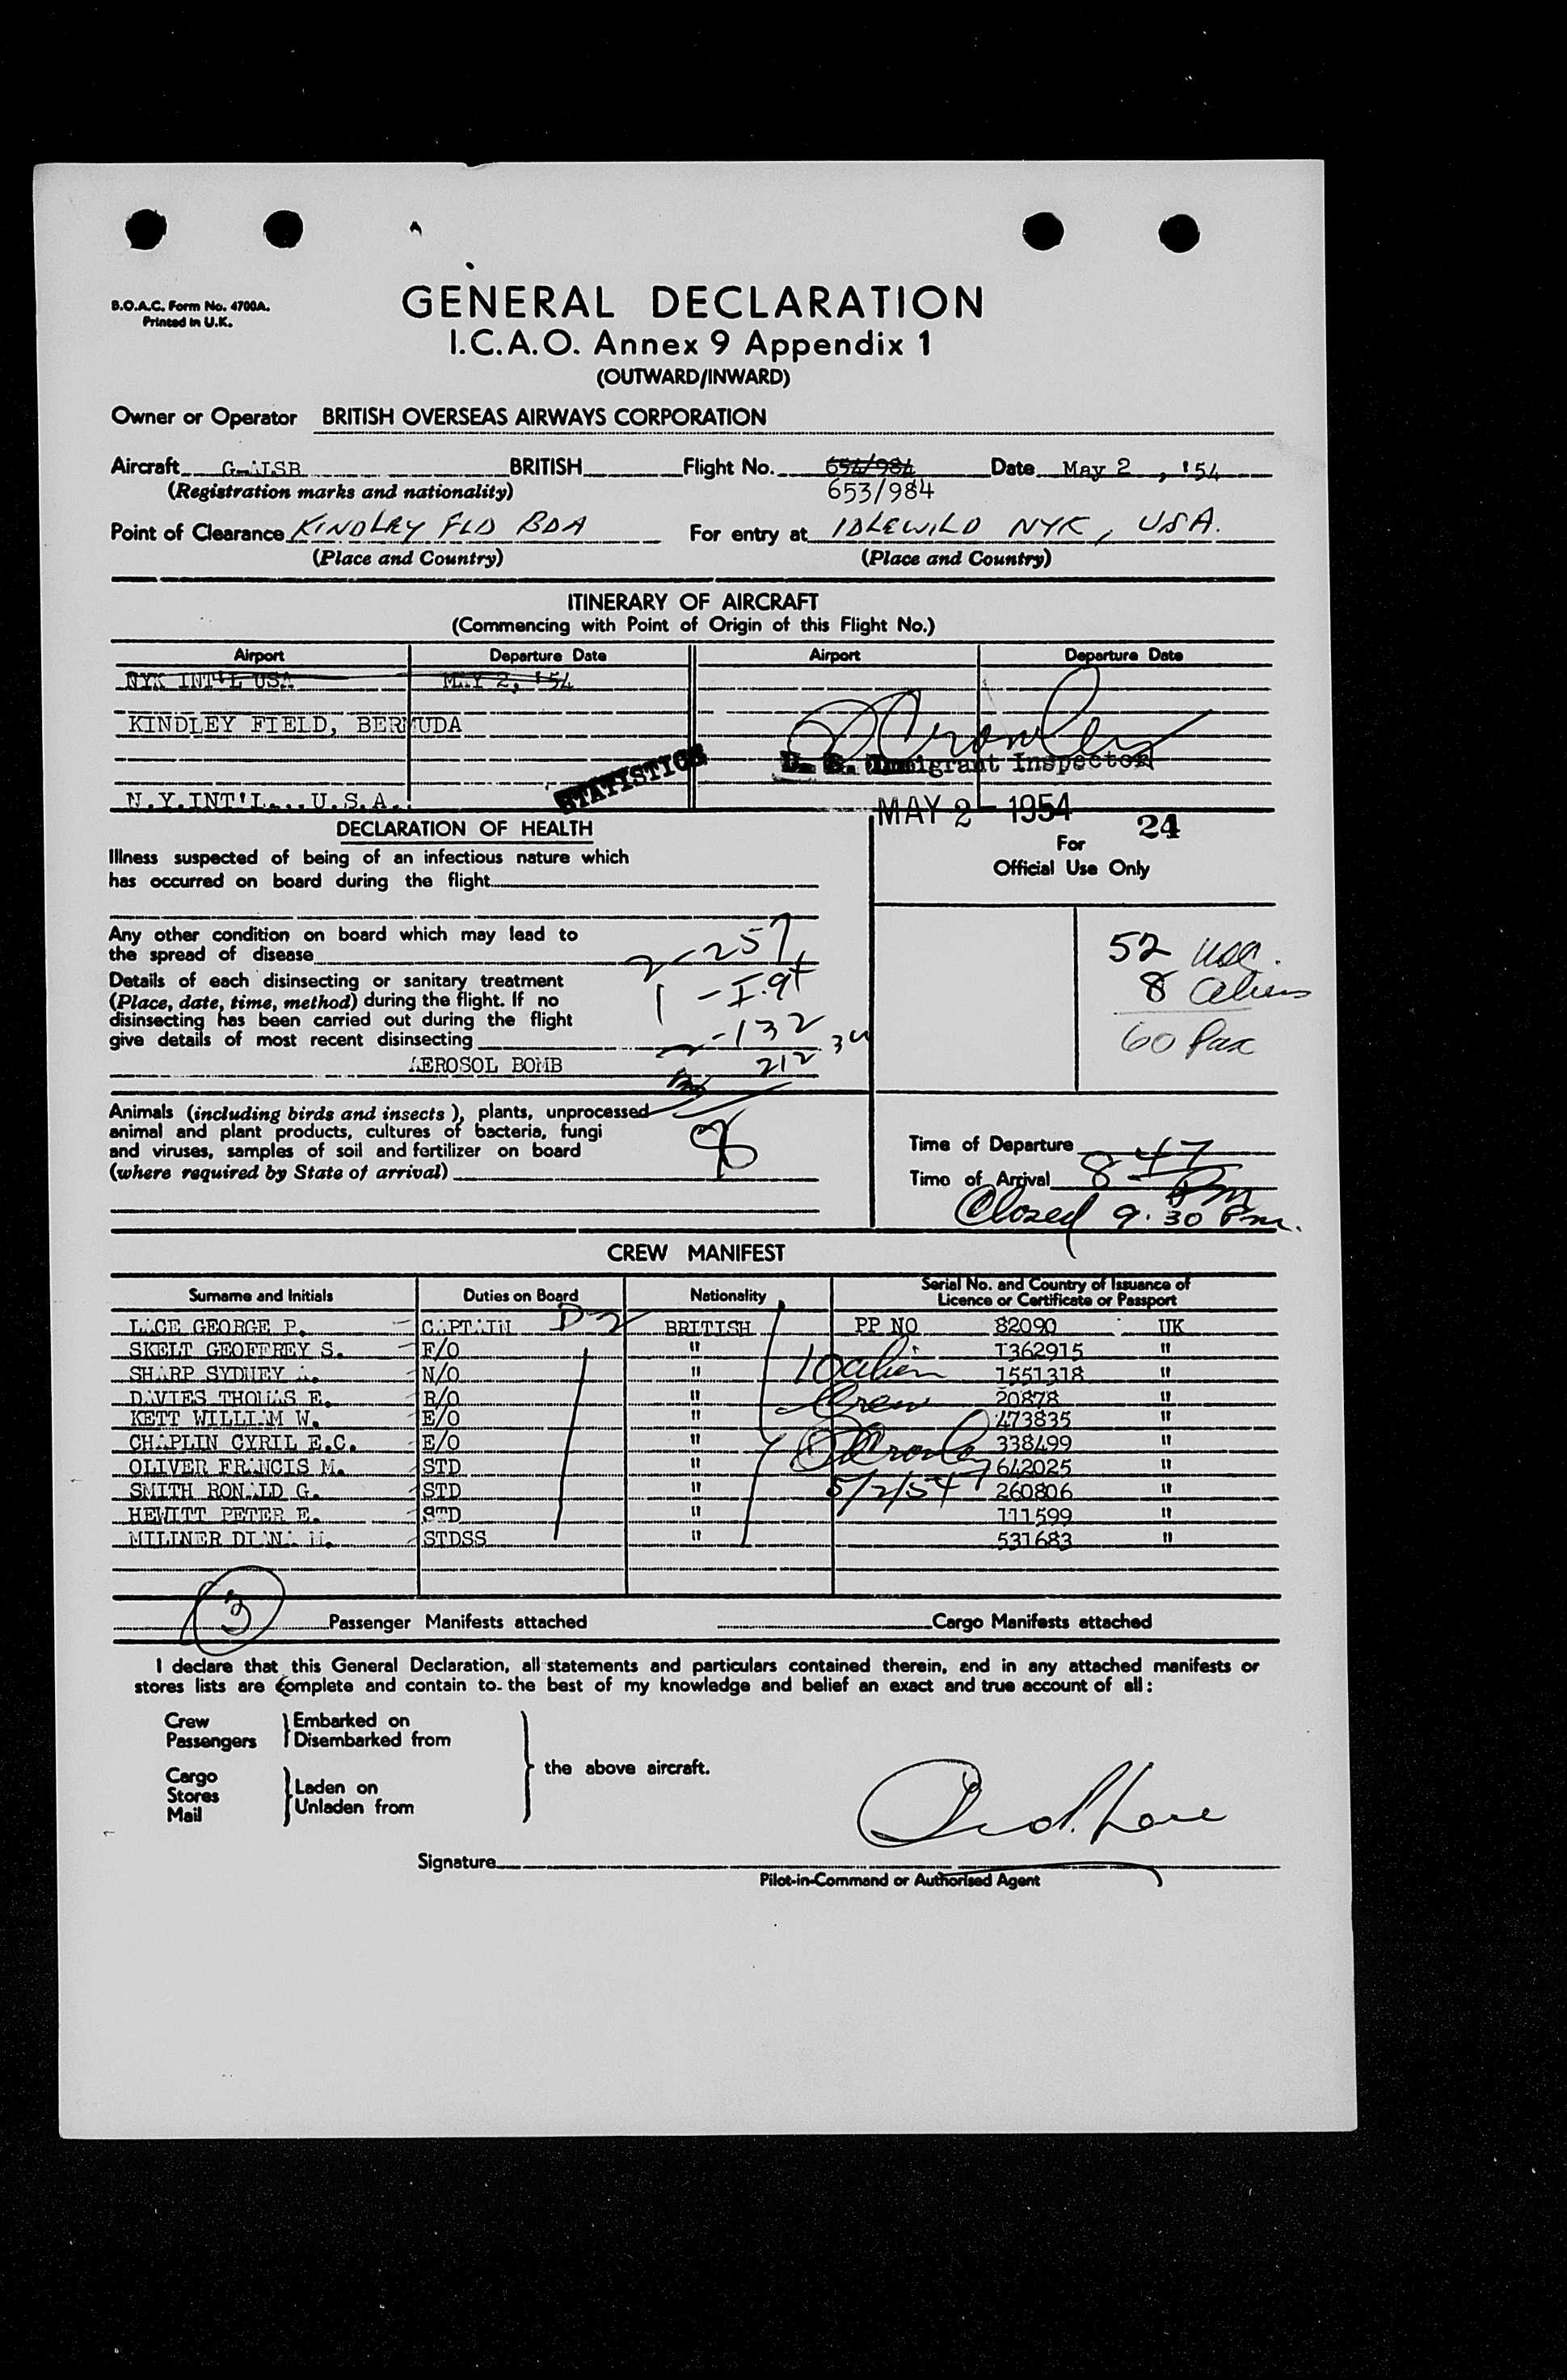 B.O.A.C. Form No. 4700A.
Printed in U.K.
GENERAL DECLARATION
I.C.A.O. Annex 9 Appendix 1
(OUTWARD/INWARD)
Owner or Operator BRITISH OVERSEAS AIRWAYS CORPORATION
Aircraft G-ALSB BRITISH Flight No. 654/984 Date May 2, '54
(Registration marks and nationality) 653/984
Point of Clearance KINDLEY FLD BDA For entry at IDLEWILD NYK, USA.
(Place and Country) (Place and Country)
ITINERARY OF AIRCRAFT
(Commencing with Point of Origin of this Flight No.)
Airport Departure Date Airport Departure Date
NYK INT'L USA MAY 2, '54
KINDLEY FIELD, BERMUDA
U. S. Immigrant Inspector
STATISTICS
N.Y.INT'L...U.S.A.
MAY 2 - 1954 24
DECLARATION OF HEALTH
For
Official Use Only
Illness suspected of being of an infectious nature which
has occurred on board during the flight
Any other condition on board which may lead to
the spread of disease
2-257
Details of each disinsecting or sanitary treatment
(Place, date, time, method) during the flight. If no
disinsecting has been carried out during the flight
give details of most recent disinsecting
1 - I.94
2-132
212 34
AEROSOL BOMB
52 usc.
8 aliens
60 Pax
Animals (including birds and insects), plants, unprocessed
animal and plant products, cultures of bacteria, fungi
and viruses, samples of soil and fertilizer on board
(where required by State of arrival)
8
Time of Departure
Time of Arrival 8 47 Pm
Closed 9.30 Pm.
CREW MANIFEST
Surname and Initials Duties on Board Nationality Serial No. and Country of Issuance of
Licence or Certificate or Passport
LACE GEORGE P. CAPTAIN D-2 BRITISH PP NO 82090 UK
SKELT GEOFFREY S. F/O " T362915 "
SHARP SYDNEY A. N/O " 1551318 "
DAVIES THOMAS E. R/O " 20878 "
KETT WILLIAM W. E/O " 473835 "
CHAPLIN CYRIL E.C. E/O " 338499 "
OLIVER FRANCIS M. STD " 642025 "
SMITH RONALD G. STD " 260806 "
HEWITT PETER E. STD " 111599 "
MILLNER DIANA M. STDSS " 531683 "
10 alien
Crew
5/2/54
3 Passenger Manifests attached Cargo Manifests attached
I declare that this General Declaration, all statements and particulars contained therein, and in any attached manifests or
stores lists are complete and contain to the best of my knowledge and belief an exact and true account of all:
Crew
Passengers
Embarked on
Disembarked from
the above aircraft.
Cargo
Stores
Mail
Laden on
Unladen from
Signature
Pilot-in-Command or Authorised Agent